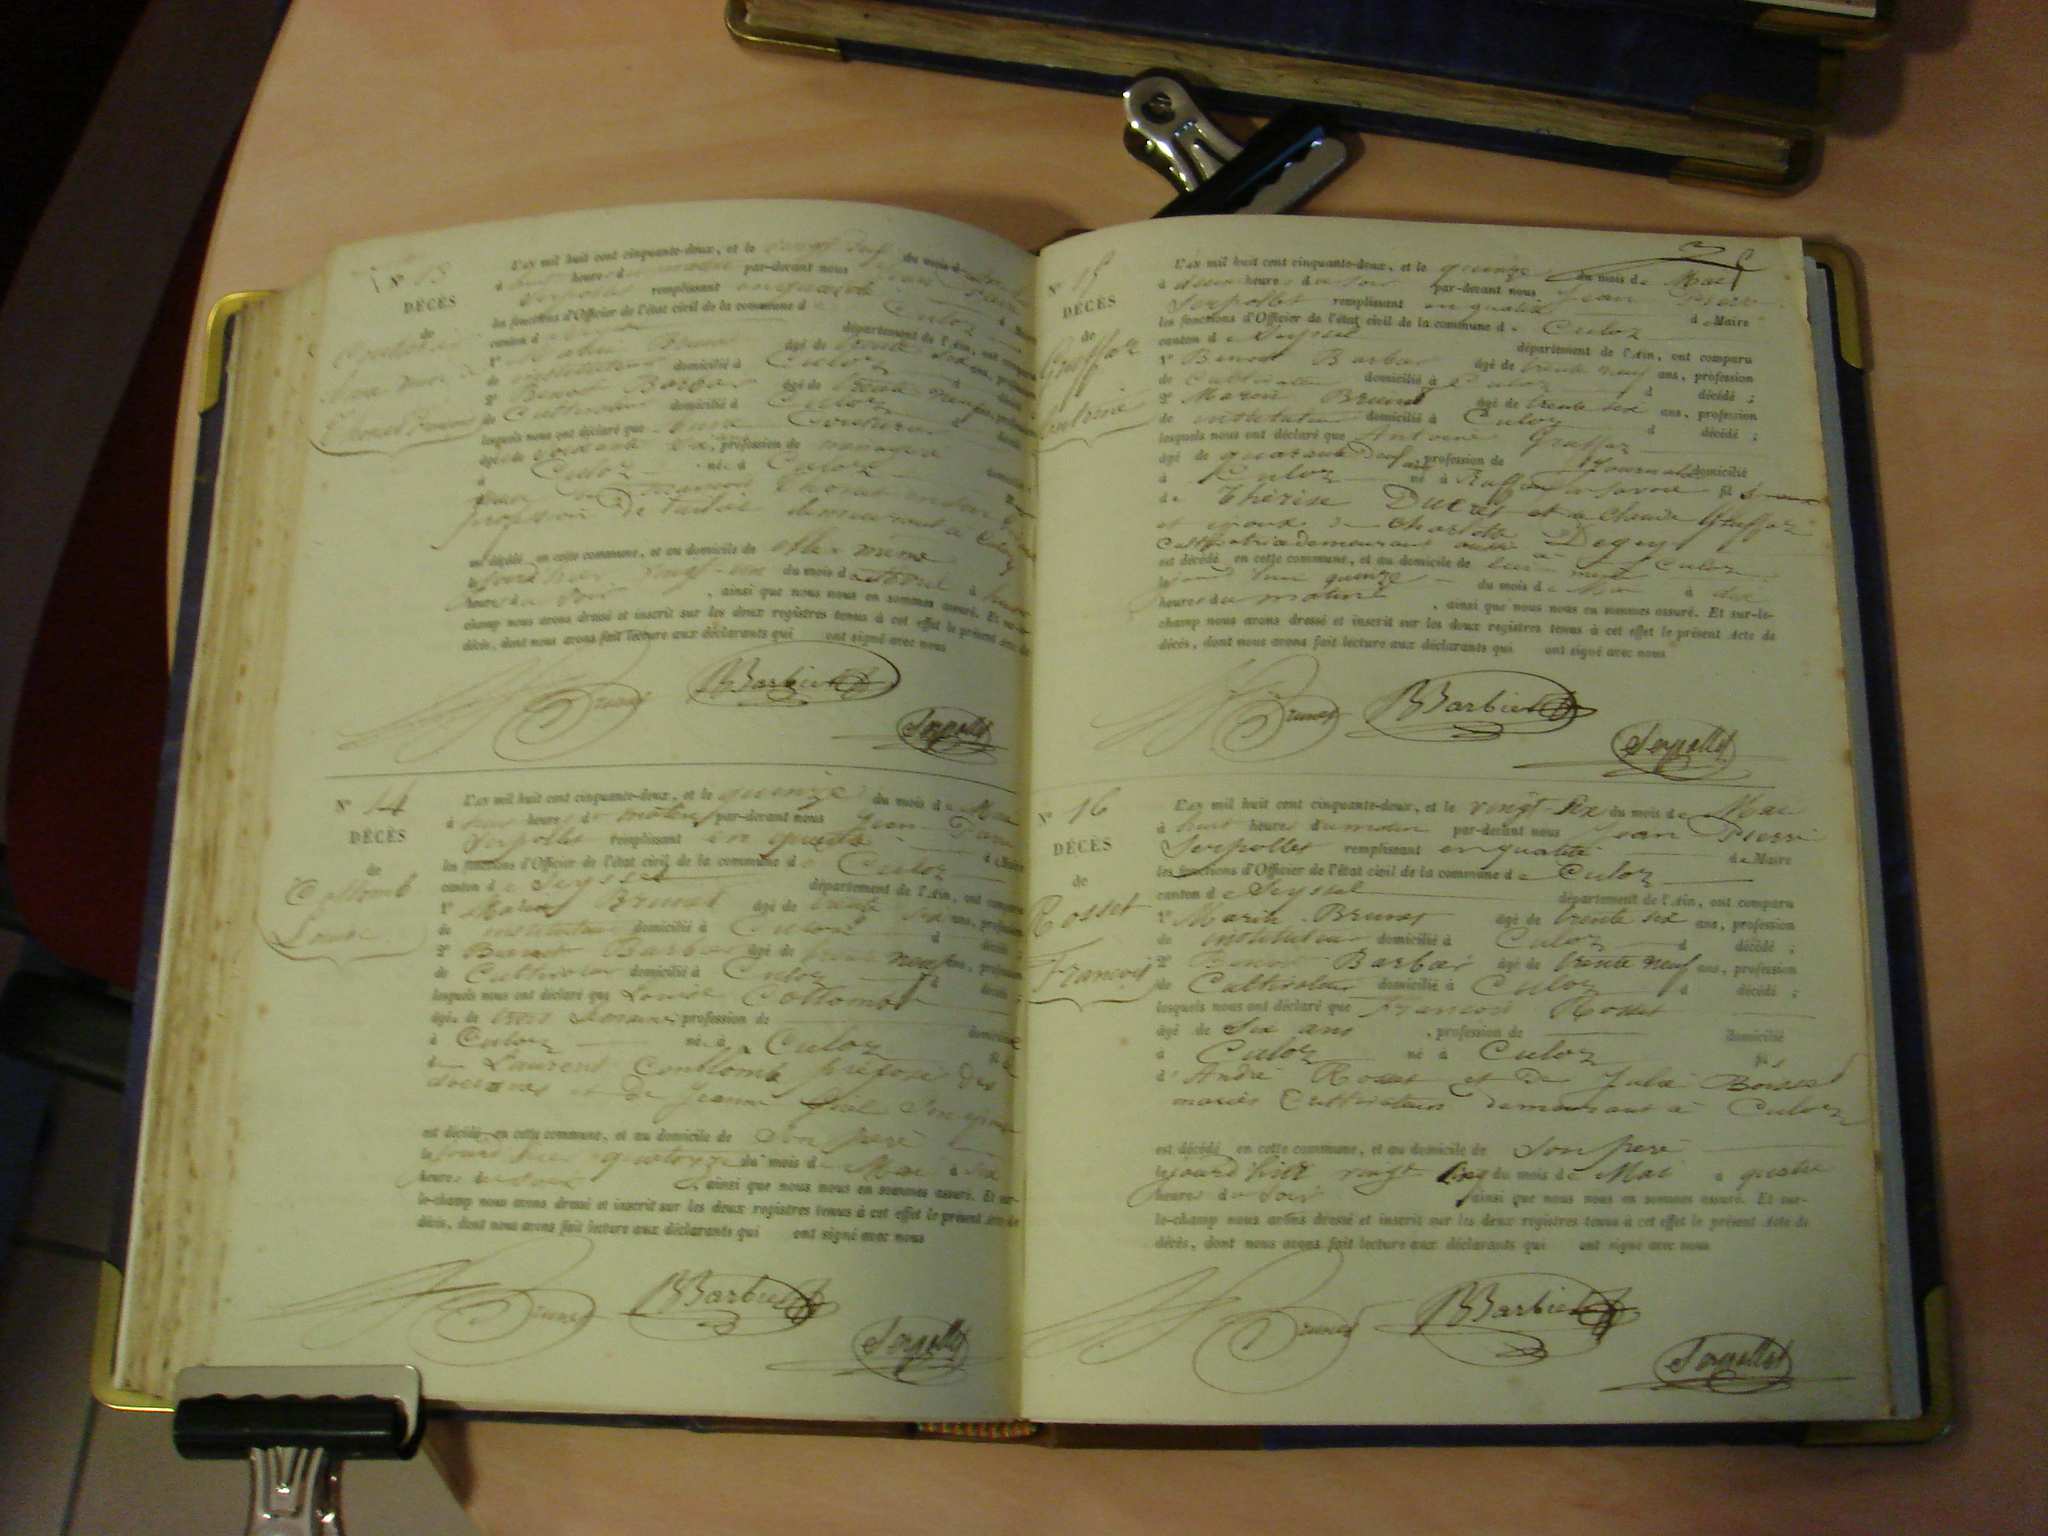 N° 13
DÉCÈS
de
L'AN mil huit cent cinquante-deux, et le vingt du mois d
à heures d par-devant nous Jean Pierre
Serpollet remplissant en qualité d Maire
les fonctions d'Officier de l'état civil de la commune de Culoz
canton d département de l'Ain, ont comparu
1° Marin Brunet âgé de trente six ans, profession
de instituteur domicilié à Culoz d décédé
2° Benoit Barbier âgé de trente neuf ans, profession
de Cultivateur domicilié à Culoz d décédé
lesquels nous ont déclaré que
âgée de soixante profession de domiciliée
à Culoz née à Culoz
profession de demeurant à Culoz
est décédé en cette commune, et au domicile de elle même
le jourd'hier vingt-un du mois d à
heures du soir, ainsi que nous nous en sommes assuré. Et sur-le-
champ nous avons dressé et inscrit sur les deux registres tenus à cet effet le présent Acte de
décès, dont nous avons fait lecture aux déclarants qui ont signé avec nous
Brunet BBarbier
Serpollet
N° 14
DÉCÈS
de
Collomb
Louise
L'AN mil huit cent cinquante-deux, et le quinze du mois de Mai
à heures du matin par-devant nous Jean Pierre
Serpollet remplissant en qualité de Maire
les fonctions d'Officier de l'état civil de la commune de Culoz
canton de Seyssel département de l'Ain, ont comparu
1° Marin Brunet âgé de trente six ans, profession
de instituteur domicilié à Culoz d décédé
2° Benoit Barbier âgé de trente neuf ans, profession
de Cultivateur domicilié à Culoz d décédé ;
lesquels nous ont déclaré que Louise Collomb
âgée de trois semaines profession de domiciliée
à Culoz née à Culoz fille
de Laurent Collomb préposé des
douanes et de Jeanne son épouse
est décédée en cette commune, et au domicile de son père
le jourd'hier quatorze du mois de Mai à six
heures du soir, ainsi que nous nous en sommes assuré. Et sur-
le-champ nous avons dressé et inscrit sur les deux registres tenus à cet effet le présent Acte de
décès, dont nous avons fait lecture aux déclarants qui ont signé avec nous
Brunet BBarbier
Serpollet
N° 15
DÉCÈS
de
Gruffaz
Antoine
L'AN mil huit cent cinquante-deux, et le quinze du mois de Mai
à deux heures du soir par-devant nous Jean Pierre
Serpollet remplissant en qualité d Maire
les fonctions d'Officier de l'état civil de la commune de Culoz
canton de Seyssel département de l'Ain, ont comparu
1° Benoit Barbier âgé de trente neuf ans, profession
de Cultivateur domicilié à Culoz d décédé ;
2° Marin Brunet âgé de trente six ans, profession
de instituteur domicilié à Culoz d décédé ;
lesquels nous ont déclaré que Antoine Gruffaz
âgé de quarante neuf ans, profession de Journalier domicilié
à Culoz né à en savoie fils
de Thérèse Ducret et de Claude Gruffaz
et époux de Charlotte
demeurant aussi à Culoz
est décédé en cette commune, et au domicile de lui même
le jourd'hui quinze du mois de Mai à dix
heures du matin, ainsi que nous nous en sommes assuré. Et sur-le-
champ nous avons dressé et inscrit sur les deux registres tenus à cet effet le présent Acte de
décès, dont nous avons fait lecture aux déclarants qui ont signé avec nous
Brunet BBarbier
Serpollet
N° 16
DÉCÈS
de
Rosset
François
L'AN mil huit cent cinquante-deux, et le vingt-six du mois de Mai
à huit heures du matin par-devant nous Jean Pierre
Serpollet remplissant en qualité de Maire
les fonctions d'Officier de l'état civil de la commune de Culoz
canton de Seyssel département de l'Ain, ont comparu
1° Marin Brunet âgé de trente six ans, profession
de instituteur domicilié à Culoz d décédé ;
2° Benoit Barbier âgé de trente neuf ans, profession
de Cultivateur domicilié à Culoz d décédé ;
lesquels nous ont déclaré que François Rosset
âgé de six ans, profession de domicilié
à Culoz né à Culoz fils
d'André Rosset et de Julie
mariés Cultivateurs demeurant à Culoz
est décédé en cette commune, et au domicile de son père
le jourd'hier vingt cinq du mois de Mai à quatre
heures du soir ainsi que nous nous en sommes assuré. Et sur-
le-champ nous avons dressé et inscrit sur les deux registres tenus à cet effet le présent Acte de
décès, dont nous avons fait lecture aux déclarants qui ont signé avec nous
Brunet BBarbier
Serpollet